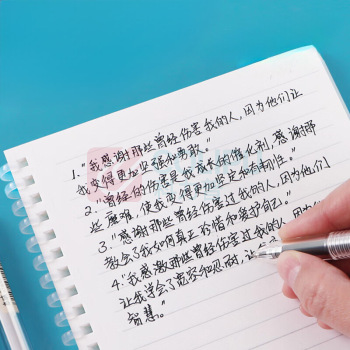 1."我感谢那些曾经伤害我的人,因为他们让
我变得更加坚强和勇敢。"
2."曾经的伤害是我成长的催化剂,感谢那
些磨难,使我变得更加坚定和有韧性。"
3."感谢那些曾经伤害过我的人,因为他们
教会了我如何真正珍惜和爱护自己。"
4."我感激那些曾经伤害过我的人,因为
让我学会了宽容和忍耐,让
智慧。"